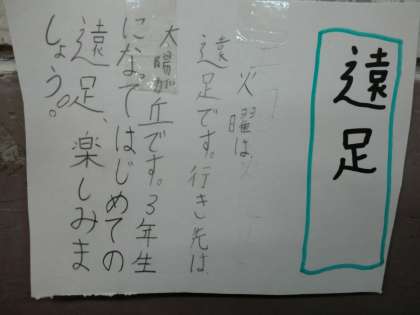 遠足
火曜は
遠足です。行き先は
太陽が丘です。3年生
になってはじめての
遠足、楽しみま
しょう。